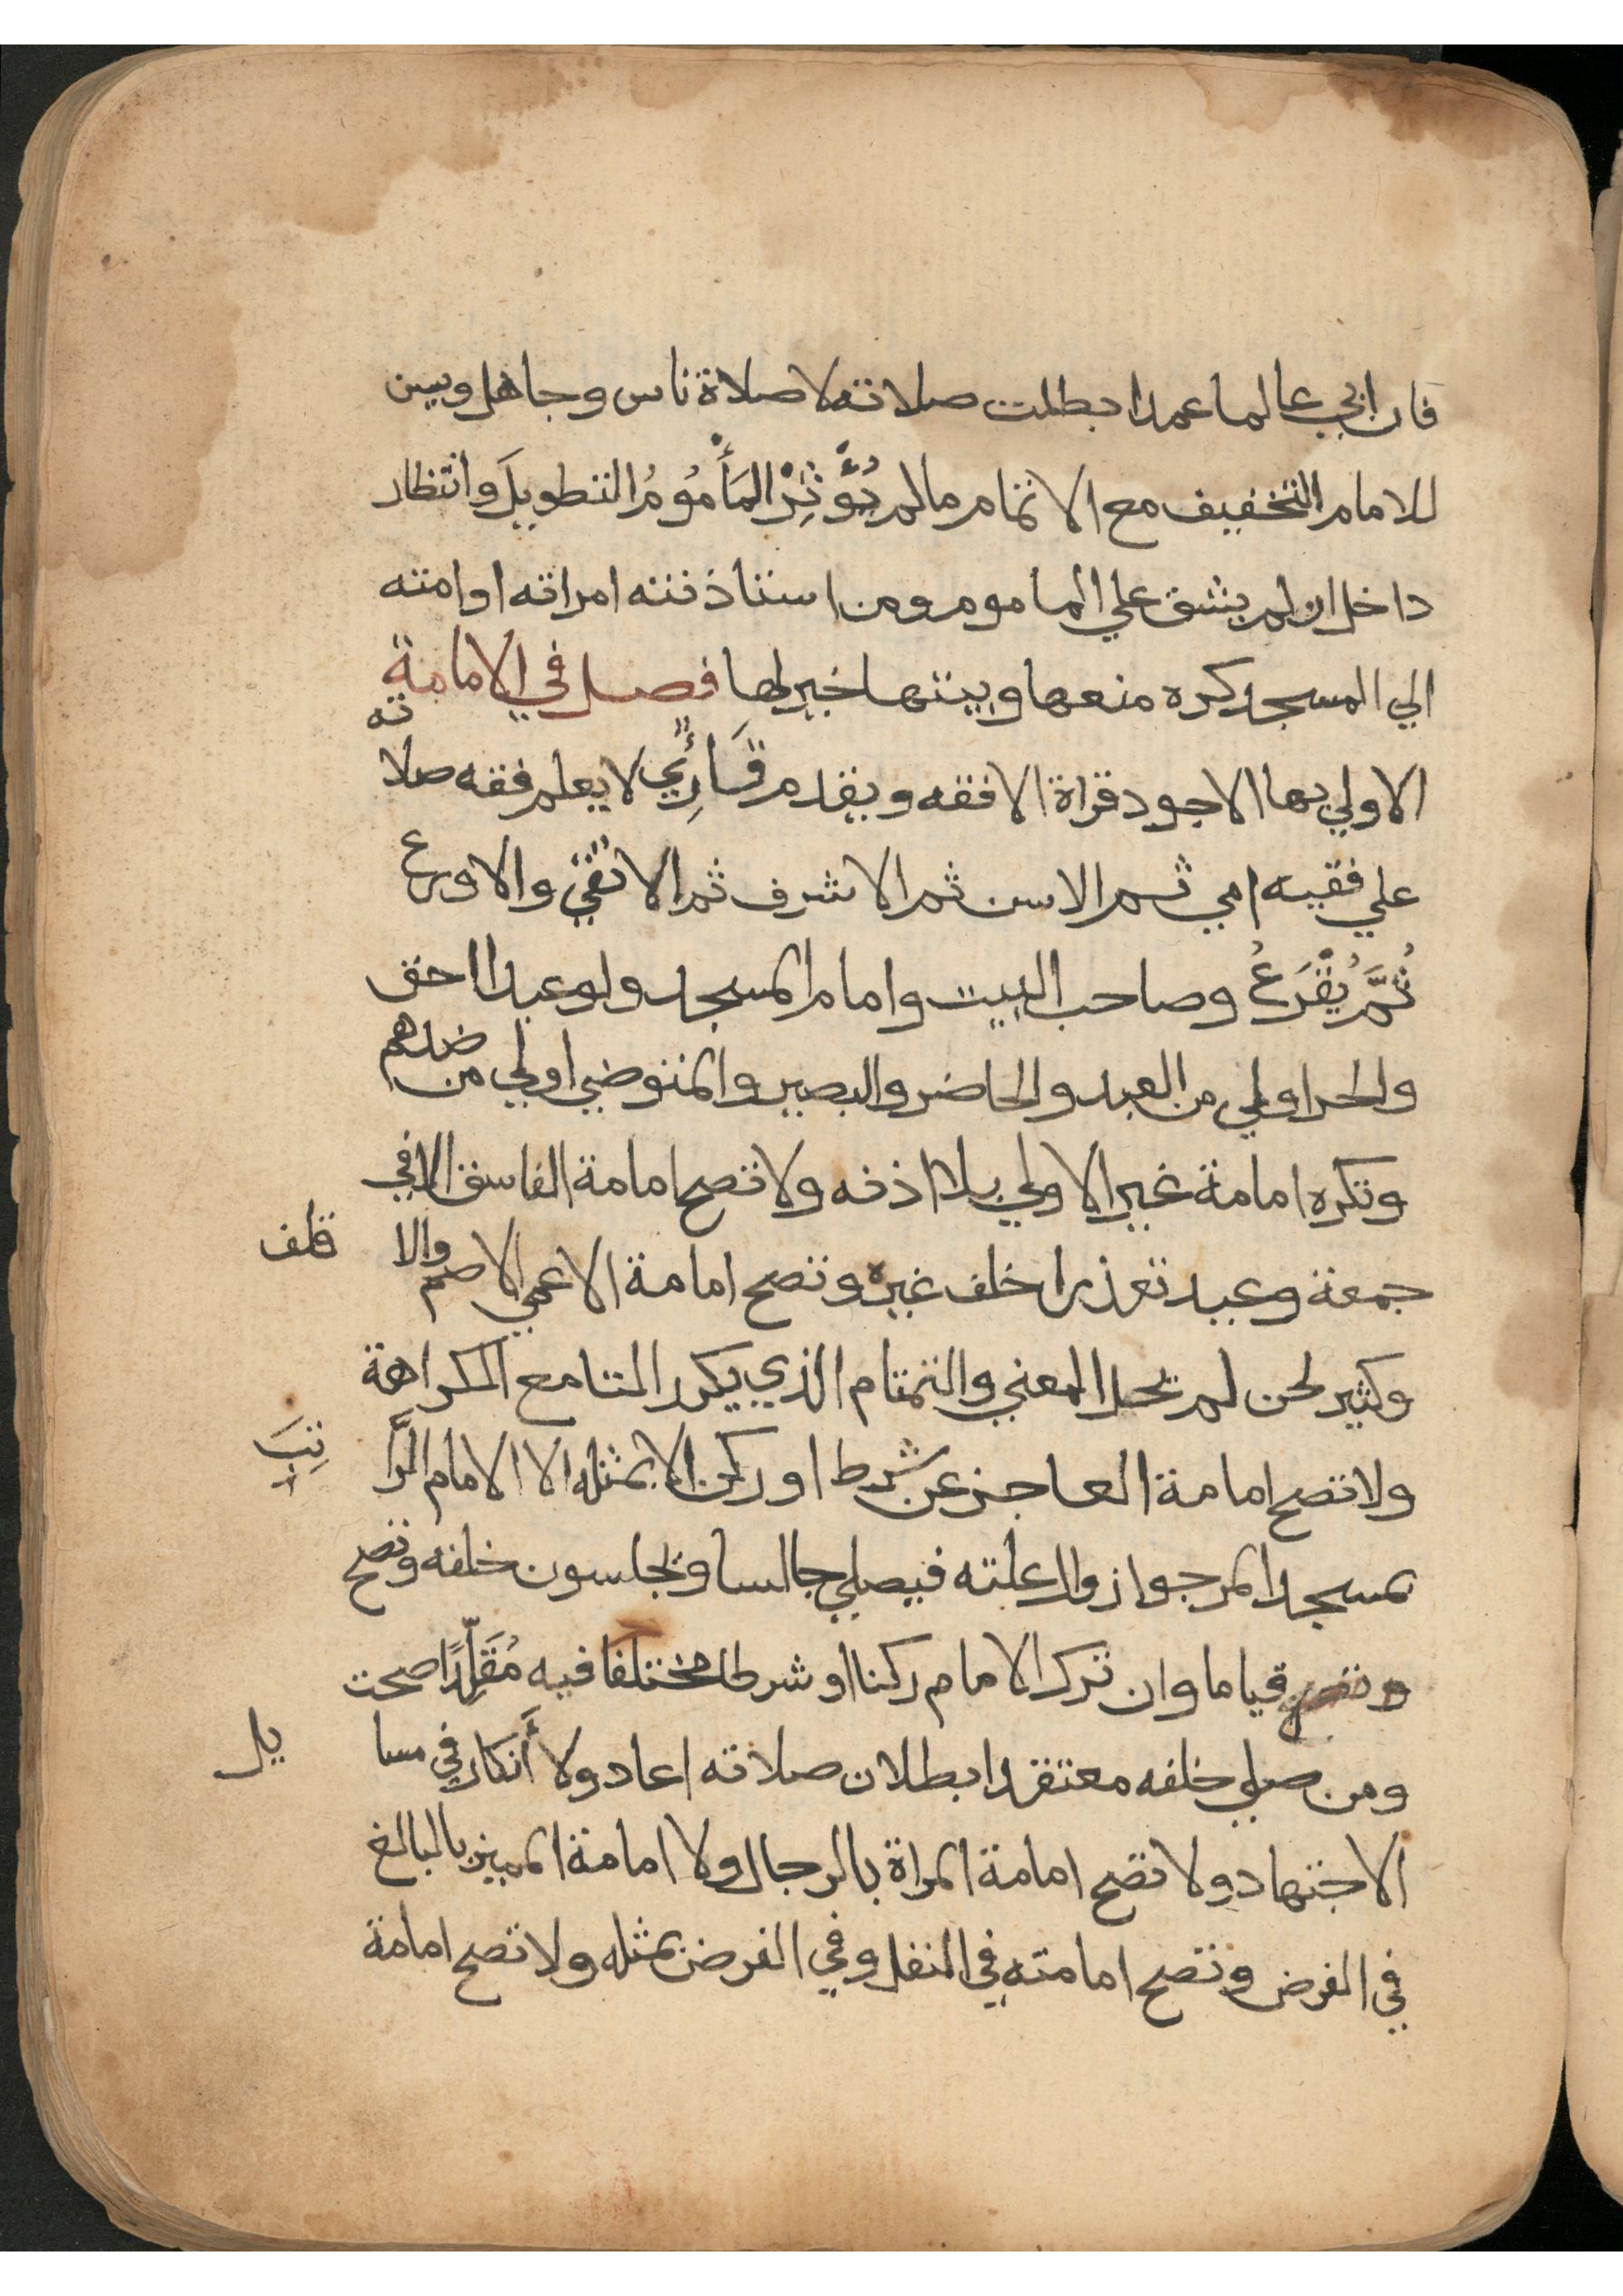 فان ابي عالما عمدا بطلت صلاته لا صلاة ناس وجاهل ويسن
للامام التخفيف مع الاتمام مالم يُؤْثِرْ المَأْمُومُ التطويلَ وانتظار
داخل ان لم يشق علي الماموم ومن استاذنته امراته او امته
الي المسجد كره منعها وبيتها خير لها فصل في الامامة
الاولي بها الاجود قراة الافقه ويقدم قَارِئٌي لا يعلم فقه صلاته
علي فقيه امي ثم الاسن ثم الاشرف ثم الاتقي والاورع
ثُمَّ يُقْرَعُ وصاحب البيت وامام المسجد ولو عبدا احق
والحر اولي من العبد والحاضر والبصير والمتوضي اولي من ضدهم
وتكره امامة غير الاولي بلا اذنه ولا تصح امامة الفاسق الا في
جمعة وعيد تعذرا خلف غيره وتصح امامة الاعمي الاصم والاقلف
وكثير لحن لم يحل المعني والتمتام الذي يكرر التا مع الكراهة
ولا تصح امامة العاجز عن شرط او ركن الا بمثله الا الامام الرَّاتِبَ
بمسجد المرجوا زوال علته فيصلي جالسا ويجلسون خلفه وتصح
قياما وان ترك الامام ركنا او شرطا مختلفا فيه مُقَلِّدًا صحت
ومن صلي خلفه معتقدا بطلان صلاته اعاد ولا أنكار في مسايل
الاجتهاد ولا تصح امامة المراة بالرجال ولا امامة المميز بالبالغ
في الفرض وتصح امامته في النفل وفي الفرض بمثله ولا تصح امامة